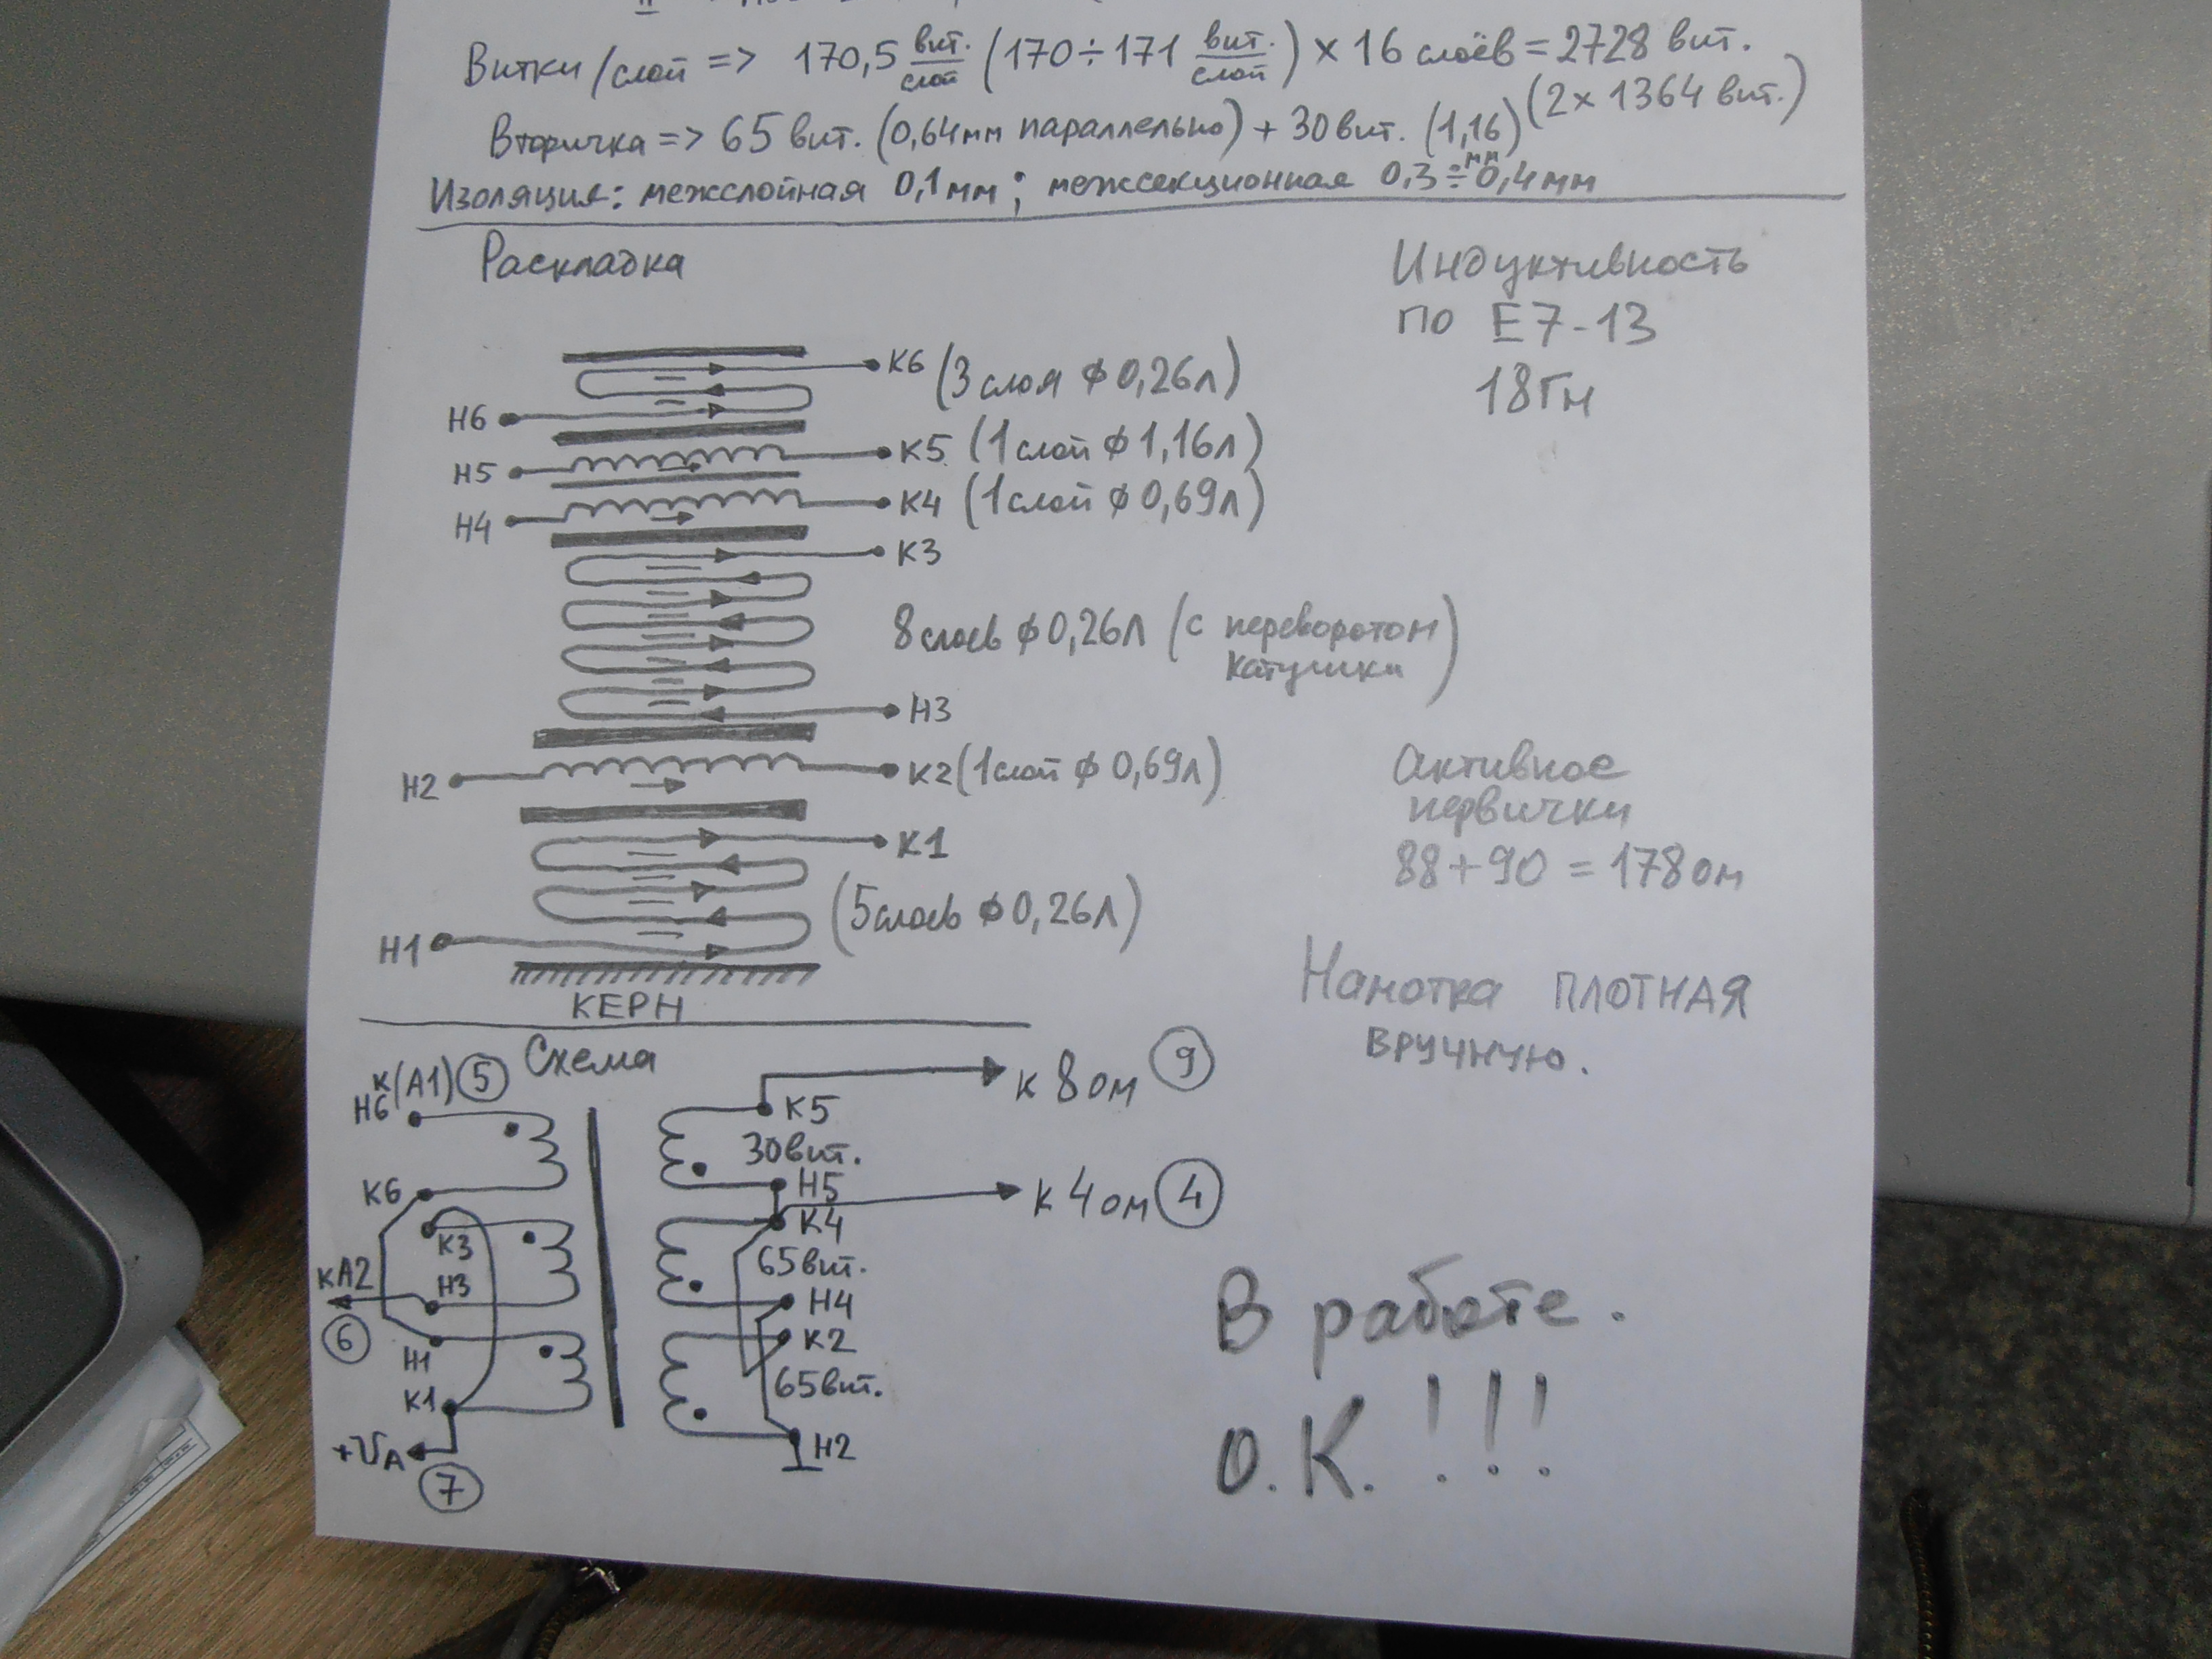 Витки/слой => 170,5 вит./слой (170÷171 вит./слой) × 16 слоёв = 2728 вит.
(2 × 1364 вит.)
Вторичка => 65 вит. (0,64мм параллельно) + 30 вит. (1,16 мм)
Изоляция: межслойная 0,1 мм; межсекционная 0,3÷0,4мм
Раскладка
Индуктивность
по Е7-13
18Гн
К6 (3 слоя ϕ 0,26л)
Н6
К5 (1 слой ϕ 1,16л)
Н5
К4 (1 слой ϕ 0,69л)
Н4
К3
8 слоев ϕ 0,26л (с переворотом
катушки)
Н3
К2 (1 слой ϕ 0,69л)
Н2
Активное
первички
88+90 = 178 ом
К1
(5 слоев ϕ 0,26л)
Н1
КЕРН
Намотка ПЛОТНАЯ
ВРУЧНУЮ.
Схема
к (А1) 5
Н6
К6
К3
кА2
Н3
6
Н1
К1
+UА
7
К5
30 вит.
Н5
К4
65 вит.
Н4
К2
65 вит.
Н2
к 8 ом 9
к 4 ом 4
В работе.
О.К.!!!